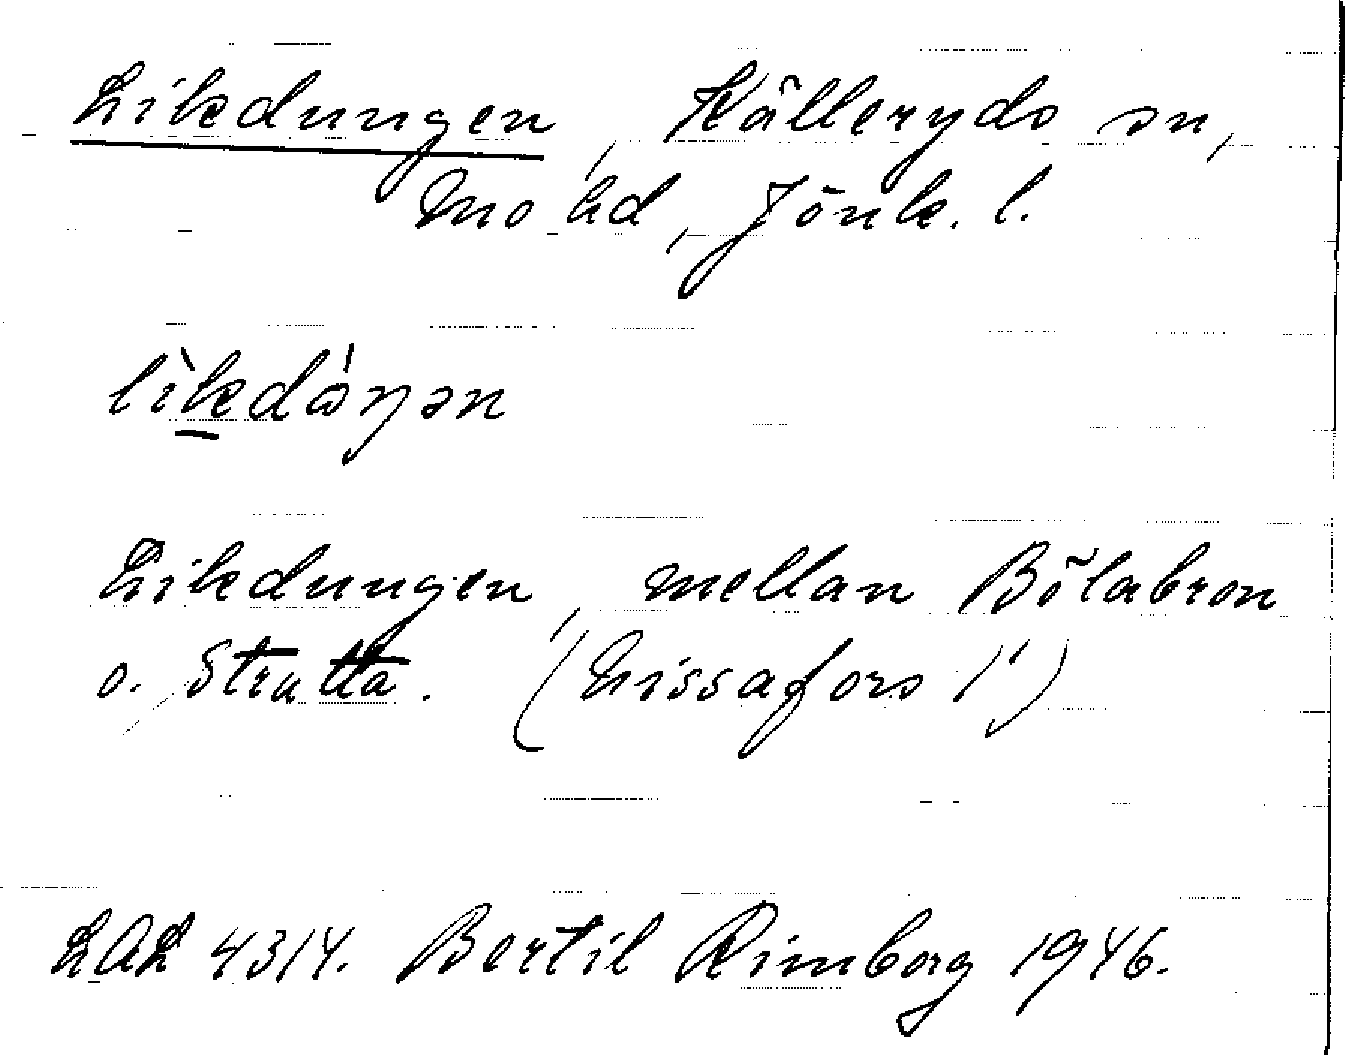 Likdungen, Källeryds sn,
Mo hd, Jönk. l.
lìkdàŋən
Likdungen, mellan Bölabron
o. Strutta. (Lissafors 1')
LAL 4314. Bertil Rimborg 1946.